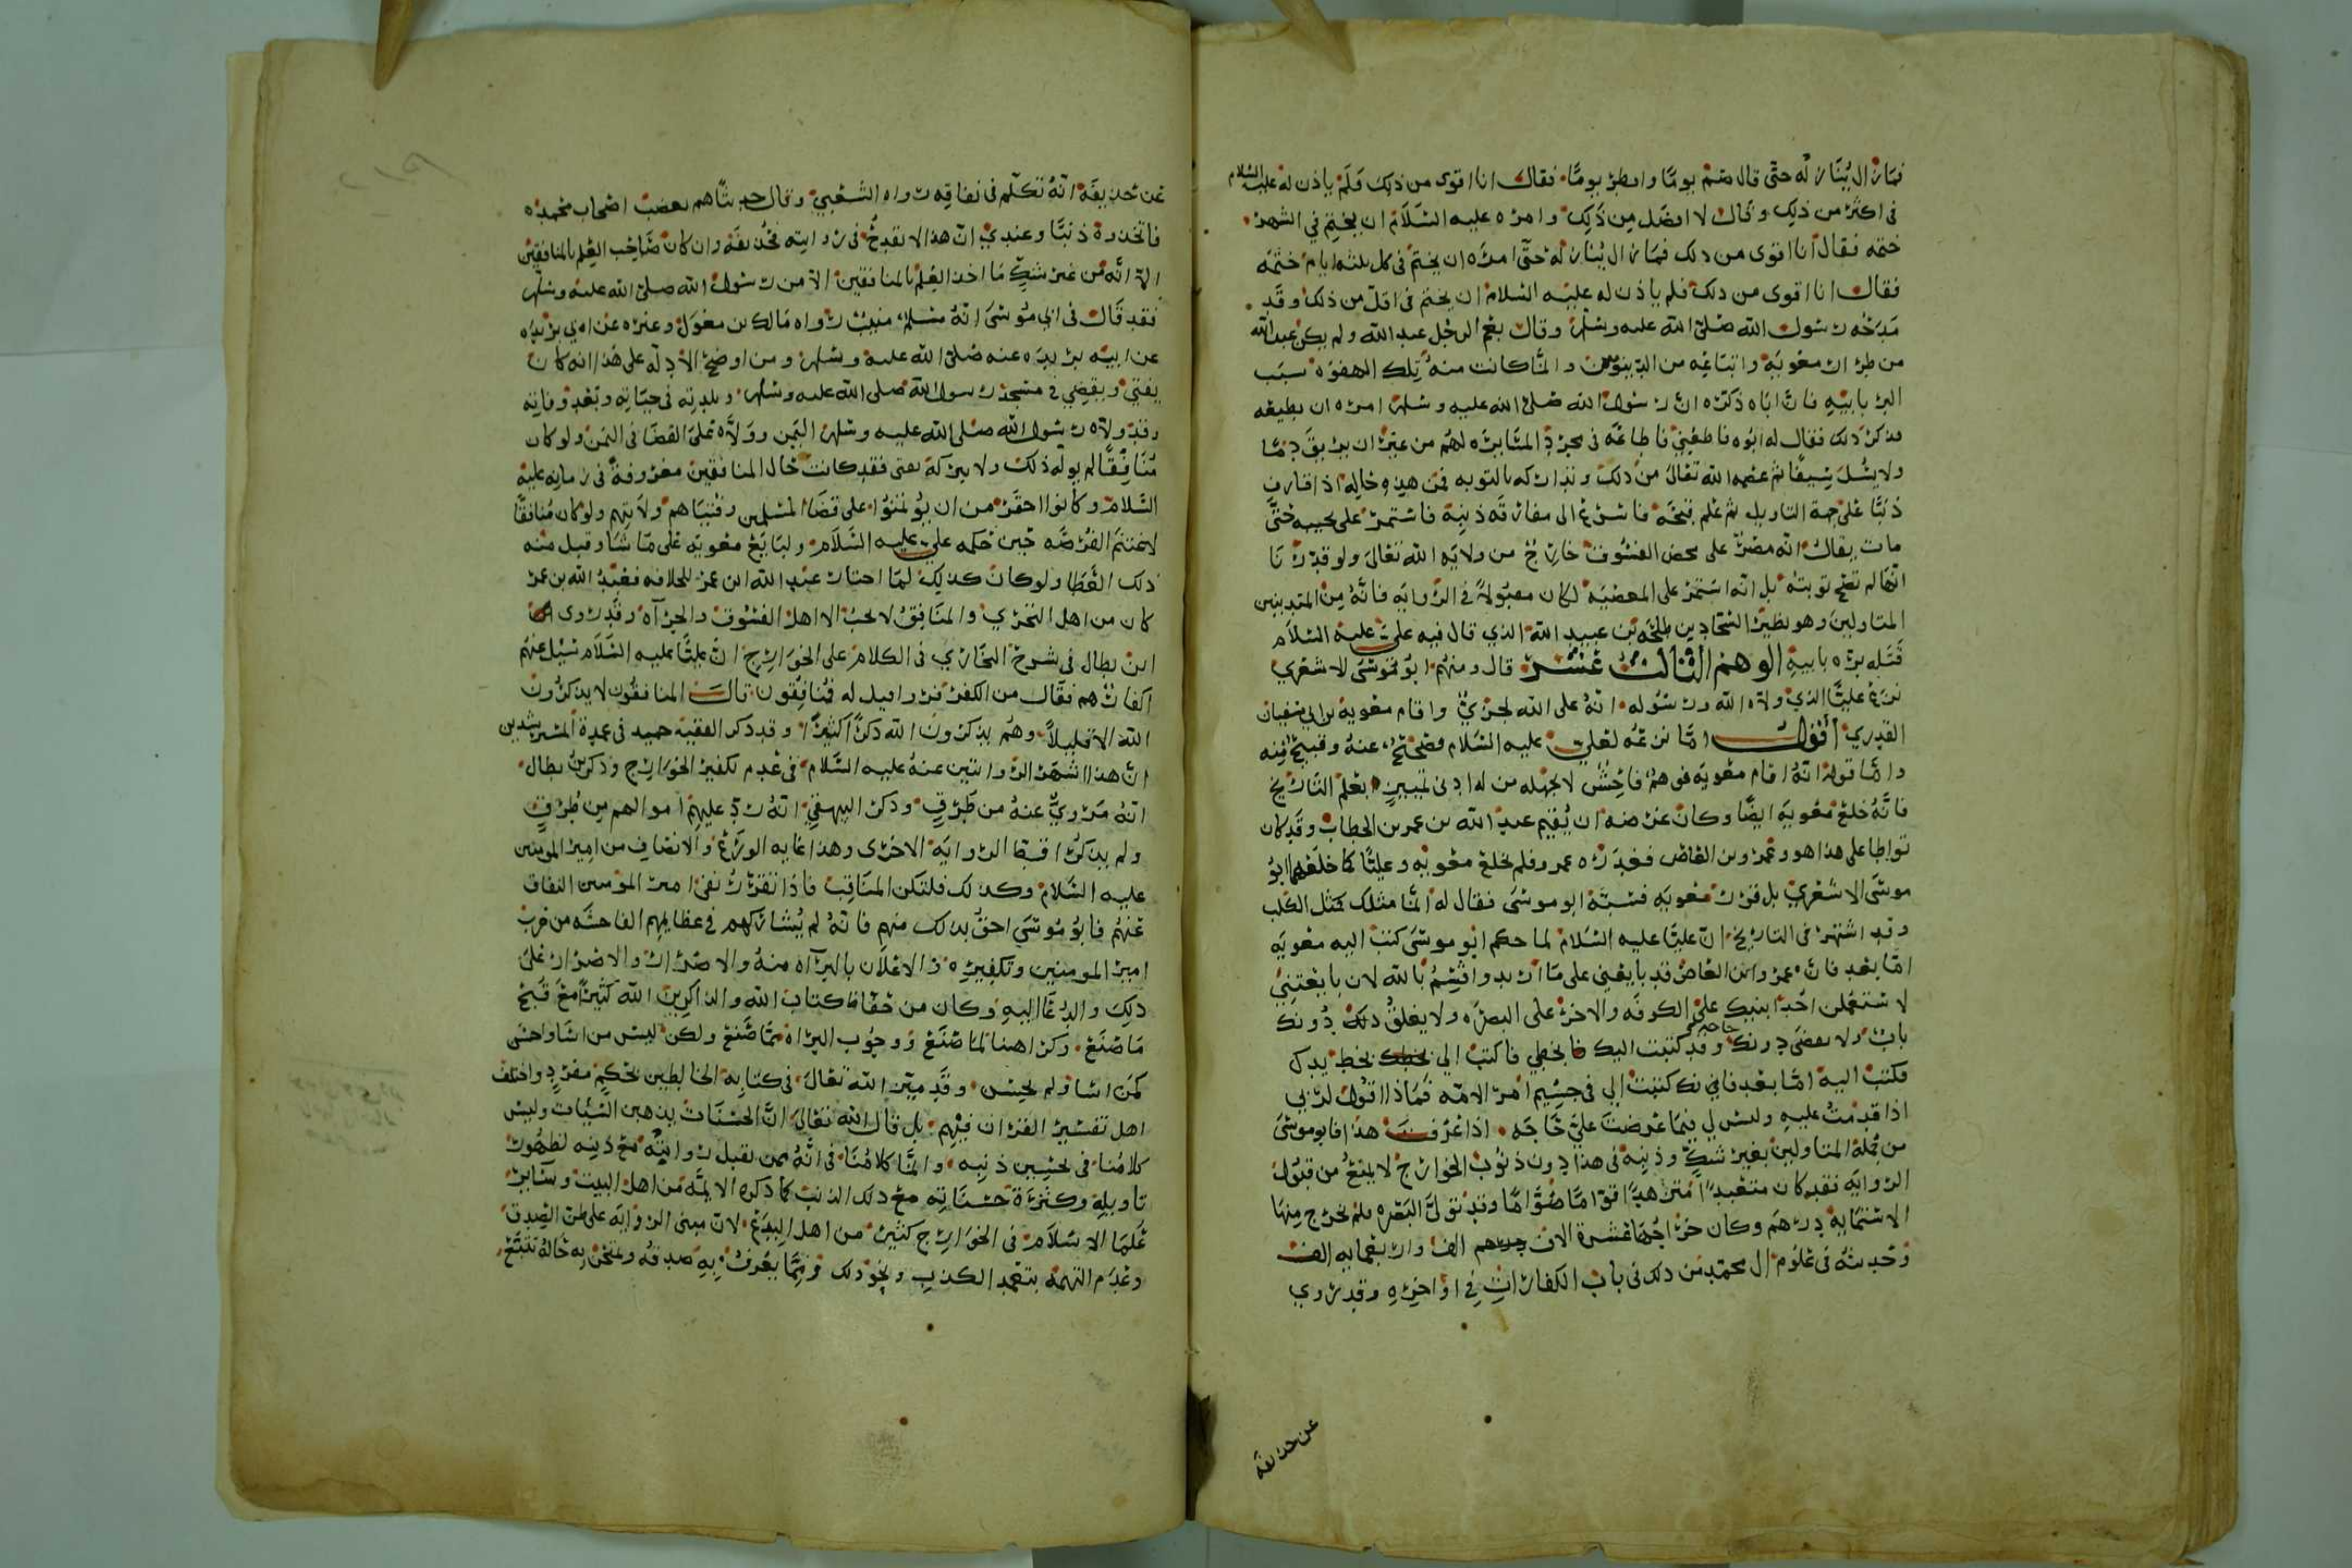 فما زال يُنَازله حتّى قال صُم يومًا وافطر يومًا فقال انا اقوى من ذلك فَلَمْ ياذن له عليه السّلام
في اكثر من ذلك وقال لا افضل مِن ذَلِك وامره عليه السّلام ان يختم في الشهر
ختمه فقال انا اقوى من ذلك فما زال يُنازله حتّى امره ان يختم في كل ثلثه ايام ختمَه
فقال انا اقوى من ذلك فلم ياذن له عليه السّلام ان يختم في اقل من ذلك وقد
مَدَحَه رسول الله صلى الله عليه وسلم وقال نعم الرجل عبدالله ولم يكن عبدالله
من طراز معويَة واتباعِه من الدنيويين وانّما كانت منه تِلك الهفوه سبب
البرّ بابيهِ فانّ اباه ذكّره انّ رسول الله صلى الله عليه وسلم امره ان يطيعه
فذكر ذلك فقال له ابوه فاطعني فاطاعَه في مجرّدِ المسايرَه لهم من غير ان يريقَ دمًا
ولا يسُلَ سيفًا ثم عصمه الله تعالى من ذلك وتداركه بالتوبه فمن هذِه حاله اذا قارف
ذنبًا على جهة التاويل ثم علم قبحَه فاسْرع الى مفارقَه ذنبِه فاستمرّ على نحيبه حتّى
مات يقال انه مصرّ على محض الفسُوق خارجٌ من ولايَه الله تعالى ولو قدّرنا
انّها لم تصح توبته بل انّه استمر على المعصيَه لكان مقبُولاً في الرّوايه فانّهُ مِن المتدينين
المتاولين وهو نظير السّجّاد بن طلحَه بن عبيد الله الذي قال فيه عليّ عليه السّلام
قَتَله برّه بابيهِ الوهم الثالث عشر قال ومنهم ابو موسى الاشعري
نزع عليًا الذي ولاه الله ورسُوله انّهُ على الله لجريٌّ واقام معوية بن ابي سفيان
القدري أقول امّا نزعُه لعليّ عليه السّلام فصَحَّ عنهُ وقبيحٌ مِنه
وامّا قوله انهُ اقام معويَه فوهمٌ فاحِشٌ لا يجهله من له ادنى تمييز بعلم التّاريخ
فانّه خلع معويَه ايضًا وكان غرضه ان يُقيم عبد الله بن عمر بن الخطاب وقد كان
تواطا على هذا هو وعَمرو بن العاص فغدَره عمرو فلم يخلع معويه وعليًا كما خلعَهما ابو
موسَى الاشعري بل قرّر معويَه فسَبّهُ ابو موسَى فقال له انّما مثلك كمثل الكلب
وقد اشتهر في التاريخ انّ عليًا عليه السّلام لما حكّم ابو موسى كتب اليه معويَه
امّا بعد فانّ عمرو ابن العاص قد بايعني على ما اريد واقسِمُ بالله لان بايعتني
لاستعملن احَد ابنيك على الكوفَه والاخر على البصرَه ولا يغلقُ دونك
بابٌ ولا تقضى دونك حاجه وقد كتبت اليك بخطي فاكتب الي بخط يدك
فكتب اليه امّا بعد فانّك كتبت الي في جسِيم امر الامّه فماذا اقول لربي
اذا قدمتُ عليه وليس لي فيما عرضتَ عليّ حَاجَه اذا عرفت هذا فابو موسَى
من جُملة المتاولين بغير شكٍّ وذنبِه في هذا دون ذنوُب الخوارج لا يمنعُ من قبول
الروايَه فقد كان متعبدًا متزهدًا قوّامًا صَوّامًا وقد تولّى البَصره فلم يخرج مِنها
الا ستمايه دِرهَم وكان خراجُهَا عشرة الاف الف واربعمايه الف
وحَديثه في علوم ال محمّد من ذلك في باب الكفاراتِ في اواخِرِه وقد روي
عن حذيفه
عَن حُذيفَة انّهُ تكلّم في نفاقِه رواه الشّعبيّ وقال حدّثناهم بغضب اصحاب محمدٍ
فاتخذوهُ ذنبًا وعندي انّ هذا لا يقدحُ في روايته فحُذيفَه وان كان صَاحِب العِلم بالمنافقين
الا انّه من غير شكٍّ مَا اخذ العِلم بالمنافقين الا من رسُول الله صلى الله عليه وسلّم
فقد قَال في ابي موسَى انهُ مسْلمٌ منيبٌ رواه مَالك بن مغول وغيره عن ابن بريده
عن ابيه بريده عنه صلى الله عليه وسلم ومن اوضح الادلّه على هذا انه كان
يفتي ويقضي في مسجد رسول الله صلى الله عليه وسلم وبلدِته في حيَاتِه وبَعْد وفاتِه
وقد ولاه رسول الله صلى الله عليه وسلم اليَمن وولاّه على القضا في اليمن ولو كان
مُنافقًا لم يولّه ذلك ولا يتركَه يفتي فقد كانت حَال المنافقين معروفةً في زمانِه عليه
السّلام وكانوا احقر من ان يُؤتمنوا على قضَا المسلمين وفتياهم ولايتهِم ولو كان مُنافقًا
لاغتنم الفُرصَه حين حكّمه علي عليه السّلام ولبَايَع معويَه على مَا شَا وقبل منه
ذلك العَطا ولو كان كذلِك لمَا احتار عبد الله ابن عمر للخلافه فعَبْدُ الله بن عمر
كان من اهل التحَري والمنَافِقُ لا يحبُ الا اهل الفسُوق والجرآه وقد روى
ابن بطال في شرح البخَاري في الكلام على الخوارج انّ عليًّا عليه السّلام سُئل عنهُم
اكفارٌ هم فقال من الكفر فرّوا قيل له فمُنافِقون قال المنافقُون لا يذكرُونَ
الله الا قليلاً وهُم يذكرونَ الله ذكرًا كثيرًا وقد ذكر الفقيه حميد في عمدة المسترشدين
انّ هذا اشهَر الروايتين عنهُ عليه السّلام في عَدم تكفير الخوارج وذكر بن بطال
انهُ مَرويٌ عنهُ من طَرقٍ وذكر البيهقي انّهُ ردّ عليهم اموالهم مِن طُرقٍ
ولم يذكرُا قط الروايَه الاخرى وهذا غايه الورَع والانصَافِ من امير المومنين
عليه السّلام وكذلك فلتكن المنَاقِب فاذا تقرّر نفي امير المومنين النفاق
عَنهُم فابو موسَى احقُ بذلك منهم فانّهُ لم يُشاركهم في عظايمهم الفاحشَه من حَرب
امير المومنين وتكفيرِه والاعلان بالبرآه منهُ والاصرار والاضرار على
ذلِك والدُعَا اليهِ وكان من حفّاظ كتاب الله والذاكرِين الله كثيرًا مَعَ قُبح
مَا صَنَع وكراهتنا لمَا صَنَع ووجُوب البراه ممّا صَنَع ولكن ليسَ من اسَا واحسَن
كمن اسَا ولم يحسِن وقد ميّز الله تعَالى في كتابِه الخالطين بحُكمٍ مفردٍ واختلف
اهل تفسير القران فيهم بل قال الله تعَالى انّ الحسَنات يذهبن السّيّئات وليس
كلامُنا في تحسِين ذنبِه وانّما كلامُنَا في انّهُ ممن تقبل روايتهُ مع ذنبِه لظهُور
تاويلِه وكثرَة حسَناتِه مع ذلك الذنب كما ذكره الايمَّه من اهل البيت وسَاير
عُلمَا الاسلاَم في الخوارج كثيرٌ من اهل البِدَع لان مبنى الرّوايَه على ظنّ الصِدق
وعَدم التهمَه بتعمد الكذب ونحو ذلك فربمَّا يُعرفُ بِه صدقُه ونتحَرّ بِه حَالهُ تتبّع